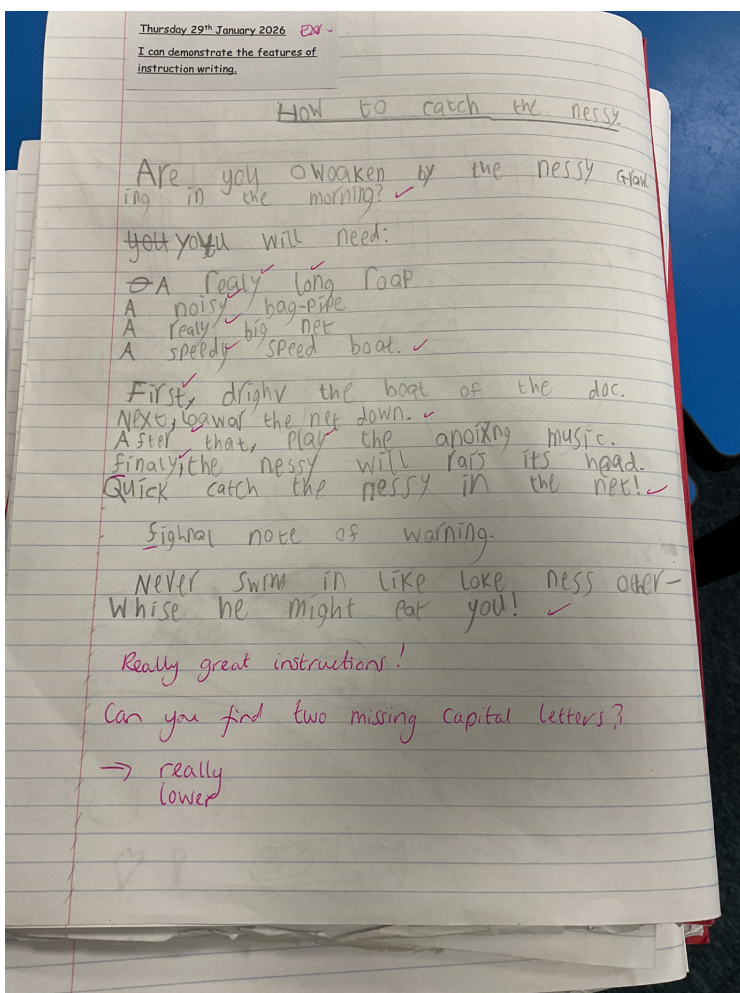 Thursday 29th January 2026 EXP.
I can demonstrate the features of
instruction writing.
How to catch the nessy.
Are you owoaken by the nessy Graw
ing in the morning? ✓
you you will need:
A realy long roap
A noisy bag-pipe
A realy big net
A speedy speed boat. ✓
First, drighv the boat of the doc.
Next, loawar the net down. ✓
After that, play the anoixng music.
finaly, the nessy will rais its head.
Quick catch the nessy in the net! ✓
fighnal note of warning.
Never swim in like loke ness other-
Whise he might eat you! ✓
Really great instructions!
Can you find two missing capital letters?
→ really
lower